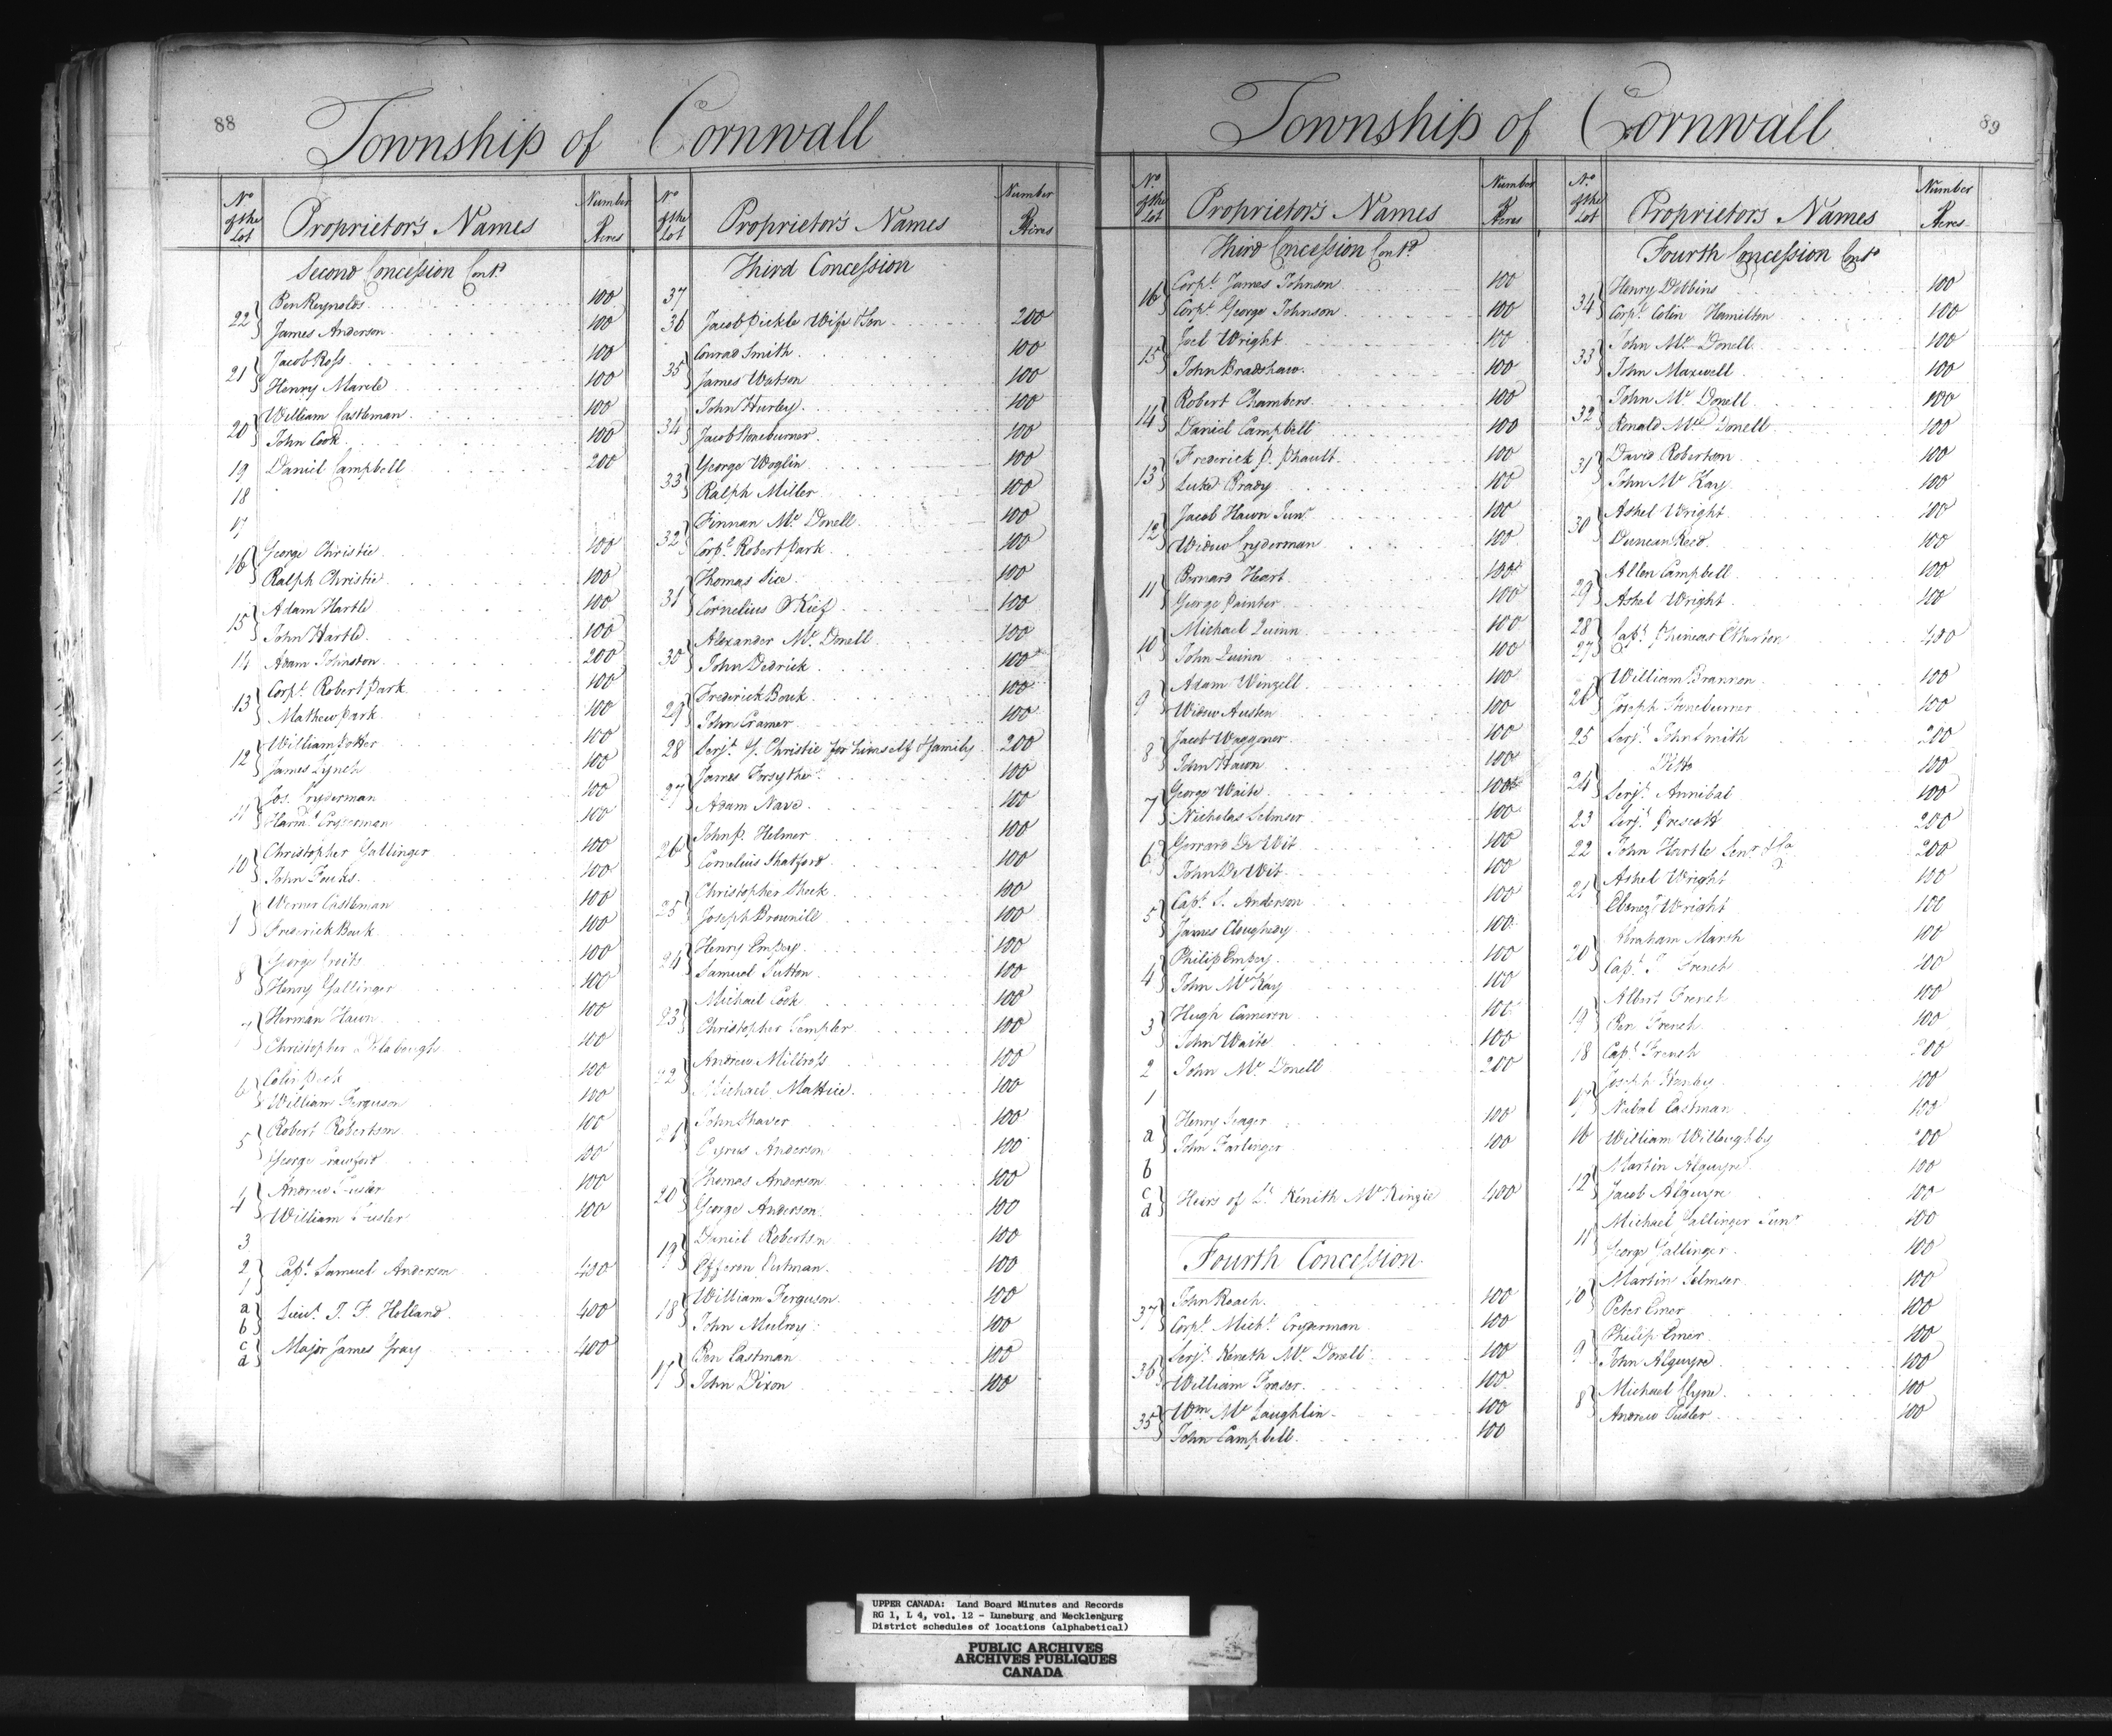 88
Township of Cornwall
No of the Lot Proprietor's Names Number Acres
Second Concession Cont.d
22 Ben Reynolds 100
James Anderson 100
21 Jacob Ross 100
Henry Marcle 100
20 William Castleman 100
John Cook 100
19 Daniel Campbell 200
18
17
16 George Christie 100
Ralph Christie 100
15 Adam Hartle 100
John Hartle 100
14 Adam Johnston 200
13 Corp.l Robert Park 100
Mathew Park 100
12 William Potter 100
James Lynch 100
11 Jos. Cryderman 100
Harm.s Cryderman 100
10 Christopher Gallinger 100
John Fouks 100
Warner Castleman 100
Frederick Bouk 100
8 George Croits 100
Henry Gallinger 100
7 Herman Hawn 100
Christopher Delabough 100
6 Colin Peek 100
William Ferguson 100
5 Robert Robertson 100
George Crawford 100
4 Andrew Fuster 100
William Fuster 100
3
2 1 Capt. Samuel Anderson 400
a b Lieut. J. F. Holland 400
c d Major James Gray 400
No of the Lot Proprietor's Names Number Acres
Third Concession
37
36 Jacob Pickle Wife & Son 200
35 Conrad Smith 100
James Watson 100
34 John Hurley 100
Jacob Stoneburner 100
33 George Woglin 100
Ralph Miller 100
32 Finnan Mc Donell 100
Corp.l Robert Park 100
31 Thomas Sice 100
Cornelius OKief 100
30 Alexander Mc Donell 100
John Dedrick 100
29 Frederick Bouk 100
John Cramer 100
28 Serjt. G. Christie for himself & family 200
27 James Forsythe 100
Adam Nave 100
26 John P. Helmer 100
Cornelius Shatford 100
25 Christopher Sheek 100
Joseph Brownill 100
24 Henry Empey 100
Samuel Sutton 100
23 Michael Cook 100
Christopher Templer 100
22 Andrew Millross 100
Michael Mattice 100
21 John Shaver 100
Cyrus Anderson 100
20 Thomas Anderson 100
George Anderson 100
19 Daniel Robertson 100
Efferen Putman 100
18 William Ferguson 100
John Mulroy 100
17 Ben Eastman 100
John Dixon 100
Township of Cornwall
89
No of the Lot Proprietor's Names Number Acres
Third Concession Cont.d
16 Corp.l James Johnson 100
Corp.l George Johnson 100
15 Joel Wright 100
John Bradshaw 100
14 Robert Chambers 100
Daniel Campbell 100
13 Frederick P. Phault 100
Luke Brady 100
12 Jacob Hawn Junr 100
Widow Cryderman 100
11 Bernard Heart 100
George Painter 100
10 Michael Quinn 100
John Quinn 100
9 Adam Winzell 100
Widow Austen 100
8 Jacob Waggoner 100
John Hawn 100
7 George Waite 100
Nicholas Selmser 100
6 Gerrard De Wit 100
John De Wit 100
5 Capt. S. Anderson 100
James Cloughesy 100
4 Philip Empey 100
John Mc Kay 100
3 Hugh Cameron 100
John Waite 100
2 John Mc Donell 200
1
a Henry Seager 100
John Farlinger 100
b
c d Heirs of Lt. Kenith Mc Kinzie 400
Fourth Concession
37 John Roach 100
Corp.l Mich.l Cryderman 100
36 Serjt. Keneth Mc Donell 100
William Fraser 100
35 Wm Mc Laughlin 100
John Campbell 100
No of the Lot Proprietor's Names Number Acres
Fourth Concession Cont.d
34 Henry Dobbins 100
Corp.l Colin Hamilton 100
33 John Mc Donell 100
John Maxwell 100
32 John Mc Donell 100
Ronald Mc Donell 100
31 David Robertson 100
John Mc Kay 100
30 Ashel Wright 100
Duncan Reed 100
29 Allen Campbell 100
Ashel Wright 100
28 27 Capt. Phineas 400
26 William Brannen 100
Joseph Stoneburner 100
25 Serjt. John Smith 200
24 Ditto 100
Serjt. Annibal 100
23 Serjt. Prescott 200
22 John Hartle Senr & Co 200
21 Ashel Wright 100
Ebenezr Wright 100
20 Abraham Marsh 100
Capt. J. French 100
19 Albert French 100
Ben French 100
18 Capt. French 200
17 Joseph Hanby 100
Nabal Eastman 100
16 William Willoughby 200
12 Martin Alguyre 100
Jacob Alguyre 100
11 Michael Gallinger Junr 100
George Gallinger 100
10 Martin Selmser 100
Peter Emer 100
9 Philip Emer 100
John Alguyre 100
8 Michael Clyne 100
Andrew Fusler 100
UPPER CANADA: Land Board Minutes and Records
RG 1, L 4, vol. 12 - Luneburg and Mecklenburg
District schedules of locations (alphabetical)
PUBLIC ARCHIVES
ARCHIVES PUBLIQUES
CANADA